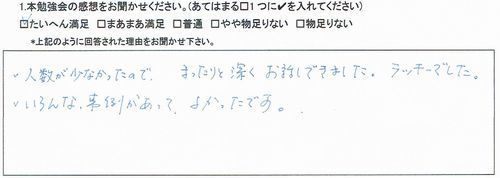 1.本勉強会の感想をお聞かせください。(あてはまる□1つに✔を入れてください)
☑たいへん満足 □まあまあ満足 □普通 □やや物足りない □物足りない
*上記のように回答された理由をお聞かせ下さい。
・人数が少なかったので、まったりと深くお話しできました。ラッキーでした。
・いろんな事例があって、よかったです。